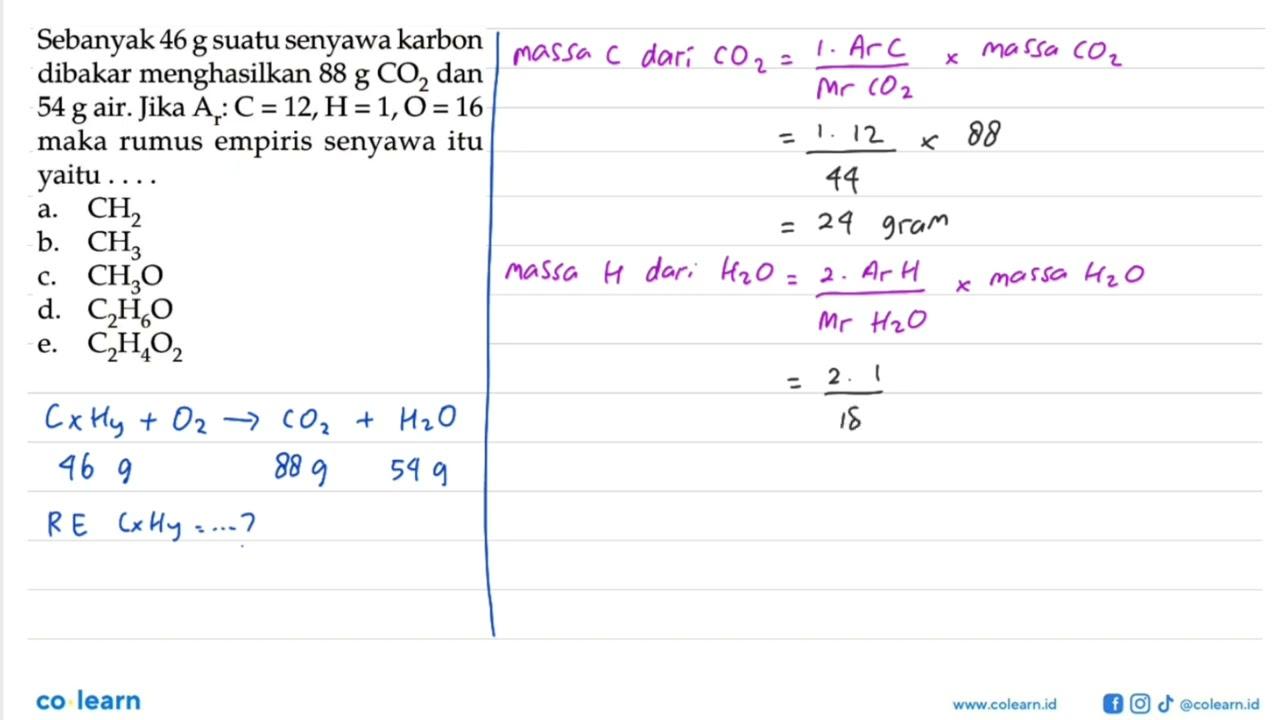 Sebanyak 46 g suatu senyawa karbon
dibakar menghasilkan 88 g CO₂ dan
54 g air. Jika Aᵣ: C = 12, H = 1, O = 16
maka rumus empiris senyawa itu
yaitu . . . .
a. CH₂
b. CH₃
c. CH₃O
d. C₂H₆O
e. C₂H₄O₂
CxHy + O₂ → CO₂ + H₂O
46 g 88 g 54 g
RE CxHy = ...?
massa C dari CO₂ = 1. Ar C / Mr CO₂ × massa CO₂
= 1. 12 / 44 × 88
= 24 gram
massa H dari H₂O = 2. Ar H / Mr H₂O × massa H₂O
= 2. 1 / 18
co learn
www.colearn.id @colearn.id